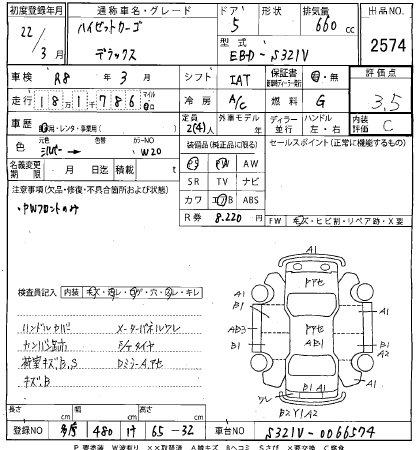 初度登録年月 通称車名・グレード ドア 形状 排気量 出品NO.
22/3月 ハイゼットカーゴ デラックス 5 660cc 2574
型式 EBD-S321V
車検 R8年3月 シフト IAT 保証書 有・無 評価点 3.5
走行 181786 冷房 A/C 燃料 G
車歴 自家用・レンタ・事業用( ) 定員 2(4)人 外車モデル年 ディーラー 並行 ハンドル 左・右 内装評価 C
色 元色 シルバー 色替 カラーNO W20 装備品(純正品に限る) セールスポイント(正常に機能するもの)
名義変更期限 月 日迄 積載 t PS PW AW
注意事項(欠品・修復・不具合箇所および状態) SR TV ナビ
・PWフロントのみ カワ エアB ABS
R券 8.220 FW キズ・ヒビ割・リペア跡・X要
検査員記入 内装 キズ・汚レ・コゲ・穴・スレ・キレ
ハンドルカバー メーターパネルワレ
荷室キズB,S DミラーA,アセ
キズB
A1
A1
アセ
B1 A1
AB3 アセ AB1 B1
A1 A1
B1 A1
ワレ
B2 Y1 A2
長さ cm 幅 cm 高さ cm
登録NO 多摩 480 け 65-32 車台NO S321V-0066574
P要塗装 W波有り ××取替済 A線キズ Bヘコミ Sさび ×要交換 C腐食